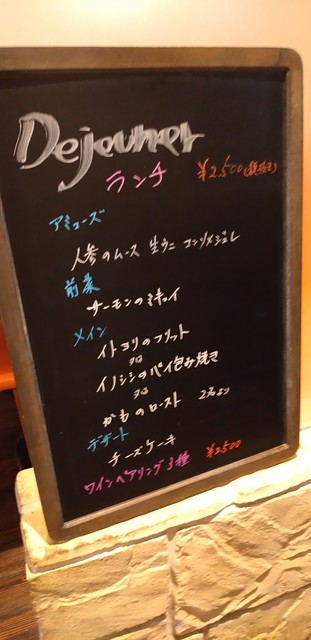 Dejeuner
ランチ ¥2,500(税抜き)
アミューズ
人参のムース 生ウニ コンソメジュレ
前菜
サーモンのミキュイ
メイン
イトヨリのフリット
又は
イノシシのパイ包み焼き
又は
かものロースト 2名より
デザート
チーズケーキ
ワインペアリング3種 ¥2500